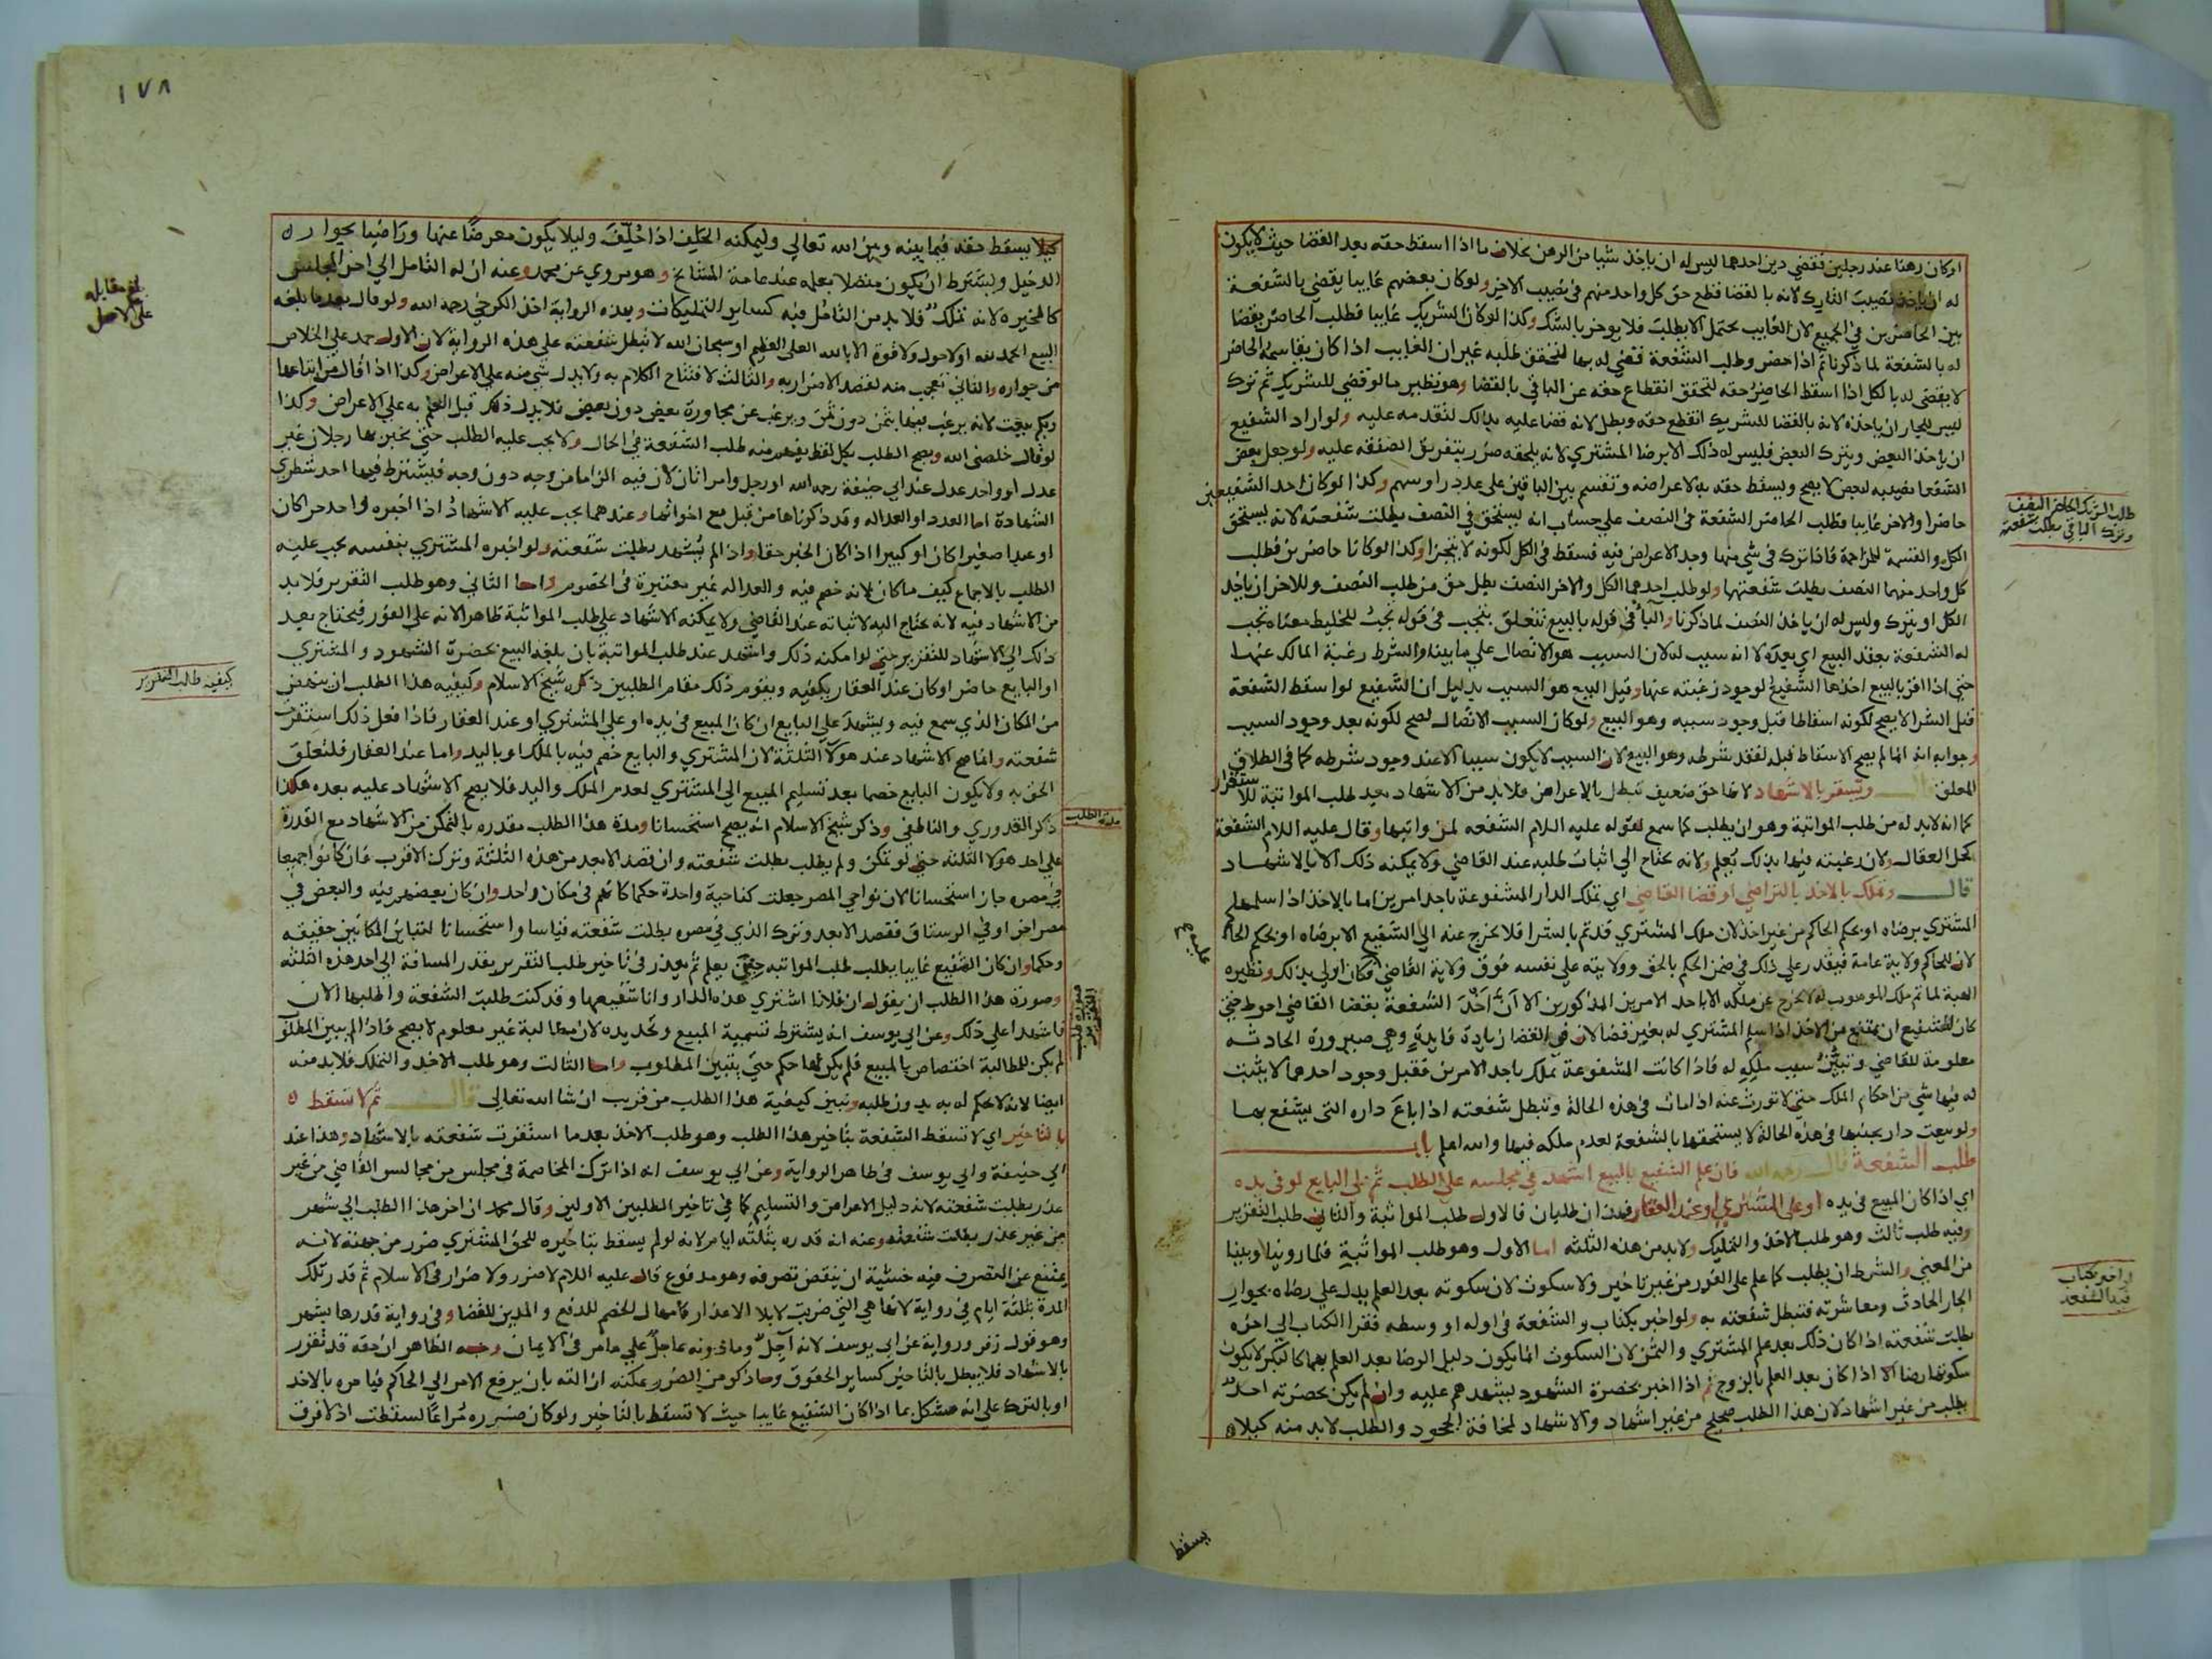 او كان رهنا عند رجلين فقضي دين احدهما ليس له ان ياخذ شيا من الرهن بخلاف ما اذا اسقط حقه بعد القضا حيث لا يكون
له ان ياخذ نصيب التارك لانه بالقضا قطع حق كل واحد منهم في نصيب الاخر ولو كان بعضهم غايبا يقضي بالشفعة
بين الحاضرين في الجميع لان الغايب يحتمل الا يطلب فلا يوخر بالشك وكذا لو كان الشريك غايبا فطلب الحاضر يقضا
له بالشفعة لما ذكرنا ثم اذا حضر وطلب الشفعة قضي له بها لتحقق طلبه غير ان الغايب اذا كان يقاسمه الحاضر
لا يقضى له بالكل اذا اسقط الحاضر حقه لتحقق انقطاع حقه عن الباقي بالقضا وهو نظير ما لو قضي للشريك ثم ترك
ليس للجار ان ياخذه لانه بالقضا للشريك انقطع حقه وبطل لانه قضا عليه بذلك لتقدمه عليه ولو اراد الشفيع
ان ياخذ البعض ويترك البعض فليس له ذلك الا برضا المشتري لانه يلحقه ضرر بتفريق الصفقه عليه ولو جعل بعض
الشفعا نصيبه لبعض لا يصح ويسقط حقه به لاعراضه وتقسم بين الباقين على عدد راوسهم وكذا لو كان احد الشفيعين
حاضرا والاخر غايبا فطلب الحاضر الشفعة في النصف علي حساب انه يستحق في النصف بطلت شفعته لانه يستحق
الكل والقسمة للمزاحمة فاذا ترك في شي منها وجد الاعراض فيه فسقط في الكل لكونه لا يتجزا وكذا لو كانا حاضرين فطلب
كل واحد منهما النصف بطلت شفعتهما ولو طلب احدهما الكل والاخر النصف بطل حق من طلب النصف وللاخر ان ياخذ
الكل او يترك وليس له ان ياخذ النصف لما ذكرنا والبا في قوله بالبيع تتعلق بتجب في قوله تجب للخليط معناه تجب
له الشفعة بعقد البيع اي بعده لا انه سبب له لان السبب هو الاتصال علي ما بينا والشرط رغبة المالك عنها
حتى اذا اقر بالبيع اخذها الشفيع لوجود رغبته عنها وقيل البيع هو السبب بدليل ان الشفيع لو اسقط الشفعة
قبل الشرا لا يصح لكونه اسقاطا قبل وجود سببه وهو البيع ولو كان السبب الاتصال لصح لكونه بعد وجود السبب
وجوابه انه انما لم يصح الاسقاط قبله لفقد شرطه وهو البيع لان السبب لا يكون سببا الا عند وجود شرطه كما في الطلاق
المعلق قال وتستقر بالاشهاد لانها حق ضعيف تبطل بالاعراض فلا بد من الاشهاد بعد طلب المواثبة للاستقرار
كما انه لا بد له من طلب المواثبة وهو ان يطلب كما سمع لقوله عليه السلام الشفعه لمن واثبها وقال عليه السلام الشفعة
كحل العقال ولان رغبته فيها بذلك يُعلم ولانه يحتاج الى اثبات طلبه عند القاضي ولا يمكنه ذلك الا بالاشهاد
قال وتملك بالاخذ بالتراضي او قضا القاضي اي تملك الدار المشفوعة باحد امرين اما بالاخذ اذا سلمها
المشتري برضاه او بحكم الحاكم من غير اخذ لان ملك المشتري قد تم بالشرا فلا يخرج عنه الي الشفيع الا برضاه او بحكم الحا
لان للحاكم ولاية عامة فيقدر علي ذلك في ضمن الحكم بالحق وولايته على نفسه فوق ولاية القاضي فكان اولي بذلك ونظيره
الهبة لما تم ملك الموهوب له لا يخرج عن ملكه الا باحد الامرين المذكورين الا ان اخذ الشفعة بقضا القاضي احوط حتى
كان للشفيع ان يمتنع من الاخذ اذا سلم المشتري له بغير قضا لان في القضا زيادة فايدة وهي صيرورة الحادثه
معلومة للقاضي وتبين سبب ملكه له فاذا كانت المشفوعة تملك باحد الامرين فقبل وجود احدهما لا يثبت
له فيها شي من احكام الملك حتى لا تورث عنه اذا مات في هذه الحالة وتبطل شفعته اذا باع داره التي يشفع بها
ولو بيعت دار بجنبها في هذه الحالة لا يستحقها بالشفعة لعدم ملكه فيها والله اعلم باب
طلب الشفعة قال رحمه الله فان علم الشفيع بالبيع اشهد في مجلسه علي الطلب ثم علي البايع لو في يده
اي اذا كان المبيع في يده او على المشتري او عند العقار فهذان طلبان فالاول طلب المواثبة والثاني طلب التقرير
وفيه طلب ثالث وهو طلب الاخذ والتملك ولا بد من هذه الثلثه اما الاول وهو طلب المواثبة فلما روينا وبينا
من المعني والشرط ان يطلب كما علم على الفور من غير تاخير ولا سكوت لان سكوته بعد العلم يدل علي رضاه بجوار
الجار الحادث ومعاشرته فتبطل شفعته به ولو اخبر بكتاب والشفعة في اوله او وسطه فقرا الكتاب الي اخره
بطلت شفعته اذا كان ذلك بعد علم المشتري والثمن لان السكوت انما يكون دليل الرضا بعد العلم بهما كالبكر لا يكون
سكوتها رضا الا اذا كان بعد العلم بالزوج ثم اذا اخبر بحضرة الشهود ليشهدهم عليه وان لم يكن بحضرته احد
يطلب من غير اشهاد لان هذا الطلب صحيح من غير اشهاد والاشهاد لمخافة الجحود والطلب لا بد منه كيلا
طلب الشريك الحاضر النصف
وترك الباقي بطلت شفعته
اذا اخبر بكتاب
فيه الشفعة
يسقط
١٧٨
كيلا يسقط حقه فيما بينه وبين الله تعالى وليمكنه الحلف اذا حُلّف ولئلا يكون معرضًا عنها وراضيا بجوار
الدخيل ويشترط ان يكون متصلا بعلمه عند عامة المشايخ وهو مروي عن محمد وعنه ان له التامل الي اخر المجلس
كالمخيره لانه تملك فلا بد من التامل فيه كساير التمليكات وبهذه الرواية اخذ الكرخي رحمه الله ولو قال بعد ما بلغه
البيع الحمد لله او لا حول ولا قوة الا بالله العلي العظيم او سبحان الله لا تبطل شفعته على هذه الرواية لان الاول حمد علي الخلاص
من جواره والثاني تعجب منه لقصد الاضرار به والثالث لافتتاح الكلام به ولا يدل شي منه علي الاعراض وكذا اذا قال من ابتاعها
وبكم بيعت لانه يرغب فيها بثمن دون ثمن ويرغب عن مجاورة بعض دون بعض فلا يدل ذلك قبل العلم به علي الاعراض وكذا
لو قال خلصني الله ويصح الطلب بكل لفظ يفهم منه طلب الشفعة في الحال ولا يجب عليه الطلب حتي يخبر بها رجلان غير
عدل او واحد عدل عند ابي حنيفة رحمه الله او رجل وامراتان لان فيه الزاما من وجه دون وجه فيشترط فيها احد شطري
الشهادة اما العدد او العداله وقد ذكرناها من قبل مع اخواتها وعندهما يجب عليه الاشهاد اذا اخبره واحد حر كان
او عبدا صغيرا كان او كبيرا اذا كان الخبر حقا واذا لم يشهد بطلت شفعته ولو اخبره المشتري بنفسه يجب عليه
الطلب بالاجماع كيف ما كان لانه خصم فيه والعداله غير معتبرة في الخصوم واما الثاني وهو طلب التقرير فلا بد
من الاشهاد فيه لانه يحتاج اليه لاثباته عند القاضي ولا يمكنه الاشهاد علي طلب المواثبة ظاهرا لانه على الفور فيحتاج بعد
ذلك الى الاشهاد للتقرير حتى لو امكنه ذلك واشهد عند طلب المواثبة بان بلغه البيع بحضرة الشهود والمشتري
او البايع حاضر او كان عند العقار يكفيه ويقوم ذلك مقام الطلبين ذكره شيخ الاسلام وكيفيه هذا الطلب ان ينهض
من المكان الذي سمع فيه ويشهد علي البايع ان كان المبيع في يده او علي المشتري او عند العقار فاذا فعل ذلك استقرت
شفعته وانما صح الاشهاد عند هولا الثلثة لان المشتري والبايع خصم فيه بالملك او باليد واما عند العقار فلتعلق
الحق به ولا يكون البايع خصما بعد تسليم المبيع الي المشتري لعدم الملك واليد فلا يصح الاشهاد عليه بعده هكذا
ذكر القدوري والناطفي وذكر شيخ الاسلام انه يصح استحسانا ومدة هذا الطلب مقدره بالتمكن من الاشهاد مع القدرة
على احد هولا الثلثه حتى لو تمكن ولم يطلب بطلت شفعته وان قصد الابعد من هذه الثلثة وترك الاقرب فان كانوا جميعا
في مصره جاز استحسانا لان نواحي المصر جعلت كناحية واحدة حكما كانهم في مكان واحد وان كان بعضهم فيه والبعض في
مصر اخر او في الرستاق فقصد الابعد وترك الذي في مصره بطلت شفعته قياسا واستحسانا لتباين المكانين حقيقه
وحكما وان كان الشفيع غايبا يطلب طلب المواثبه حين يعلم ثم يعذر في تاخير طلب التقرير بقدر المسافة الى احد هذه الثلثه
وصورة هذا الطلب ان يقول ان فلانا اشتري هذه الدار وانا شفيعها وقد كنت طلبت الشفعة واطلبها الان
فاشهدوا علي ذلك وعن ابي يوسف انه يشترط تسمية المبيع وتحديده لان مطالبة غير معلوم لا يصح فاذا لم يبين المطلوب
لم يكن للمطالبة اختصاص بالمبيع فلم يكن لها حكم حتى يتبين المطلوب واما الثالث وهو طلب الاخذ والتملك فلا بد منه
ايضا لانه لا يحكم له به بدون طلبه ونبين كيفية هذا الطلب من قريب ان شا الله تعالى قال ثم لا تسقط
بالتاخير اي لا تسقط الشفعة بتاخير هذا الطلب وهو طلب الاخذ بعد ما استقرت شفعته بالاشهاد وهذا عند
ابي حنيفة وابي يوسف في ظاهر الرواية وعن ابي يوسف انه اذا ترك المخاصمة في مجلس من مجالس القاضي من غير
عذر بطلت شفعته لانه دليل الاعراض والتسليم كما في تاخير الطلبين الاولين وقال محمد ان اخر هذا الطلب الي شهر
من غير عذر بطلت شفعته وعنه انه قدره بثلثه ايام لانه لو لم يسقط بتاخيره للحق المشتري ضرر من جهته لانه
يمتنع عن التصرف فيه خشية ان ينقض تصرفه وهو مدفوع قال عليه السلام لا ضرر ولا ضرار في الاسلام ثم قدر تلك
المدة بثلثة ايام في رواية لانها هي التي ضربت لابلا الاعذار كامهال الخصم للدفع والمدين للقضا وفي رواية قدرها بشهر
وهو قول زفر ورواية عن ابي يوسف لانه آجل وما دونه عاجل علي ما مر في الايمان وجه الظاهر ان حقه قد تقرر
بالاشهاد فلا يبطل بالتاخير كساير الحقوق وما ذكر من الضرر يمكنه ازالته بان يرفع الامر الي الحاكم فيامره بالاخذ
او بالترك على انه مشكل بما اذا كان الشفيع غايبا حيث لا تسقط بالتاخير ولو كان ضرره مُراعًا لسقطت اذ لا فرق
بلغ مقابله
على الاصل
كيفيه طلب التقرير
مدة الطلب
صورة طلب
التقرير